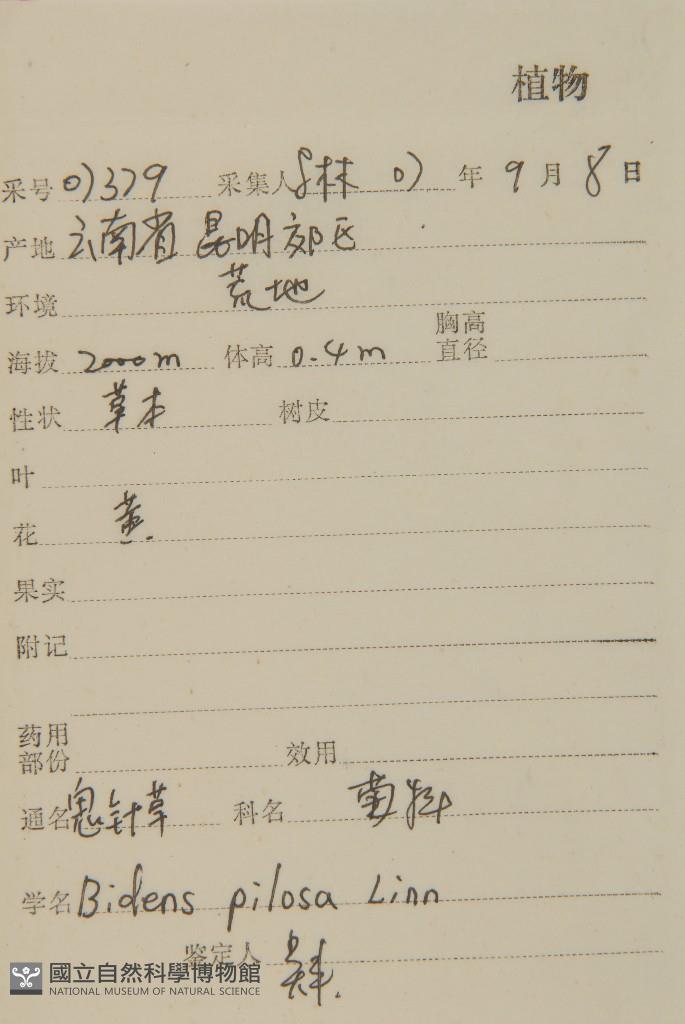 植物
采号 01379 采集人 林 01 年 9 月 8 日
产地 云南省昆明郊区
环境 荒地
海拔 2000m 体高 0.4m 胸高直径
性状 草本 树皮
叶
花 黄.
果实
附记
药用部份 效用
通名 鬼针草 科名 菊科
学名 Bidens pilosa Linn
鉴定人
國立自然科學博物館
NATIONAL MUSEUM OF NATURAL SCIENCE